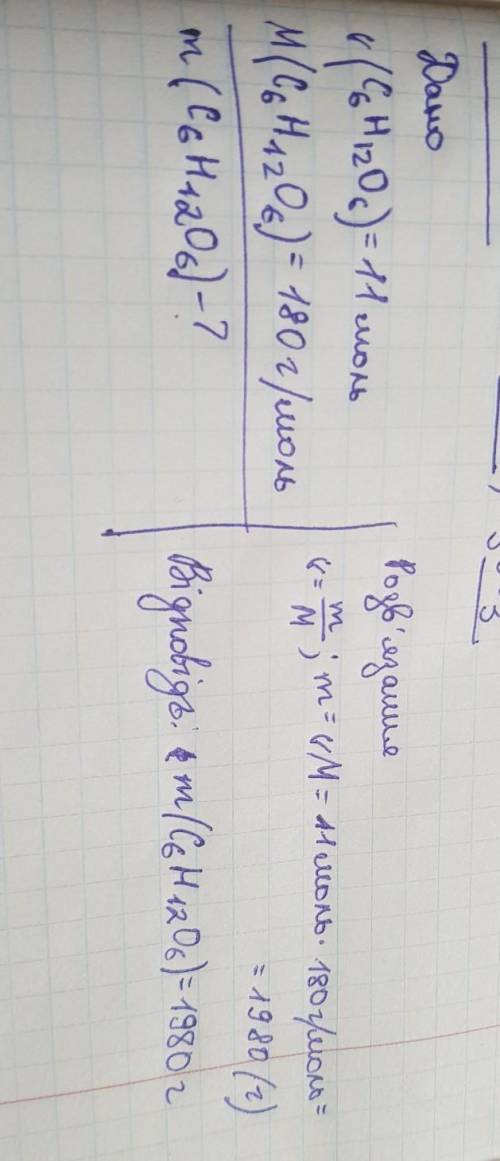 Дано
ν(C₆H₁₂O₆) = 11 моль
M(C₆H₁₂O₆) = 180 г/моль
m(C₆H₁₂O₆) - ?
Розв'язання
ν = m/M ; m = νM = 11 моль · 180 г/моль =
= 1980 (г)
Відповідь: m(C₆H₁₂O₆) = 1980 г